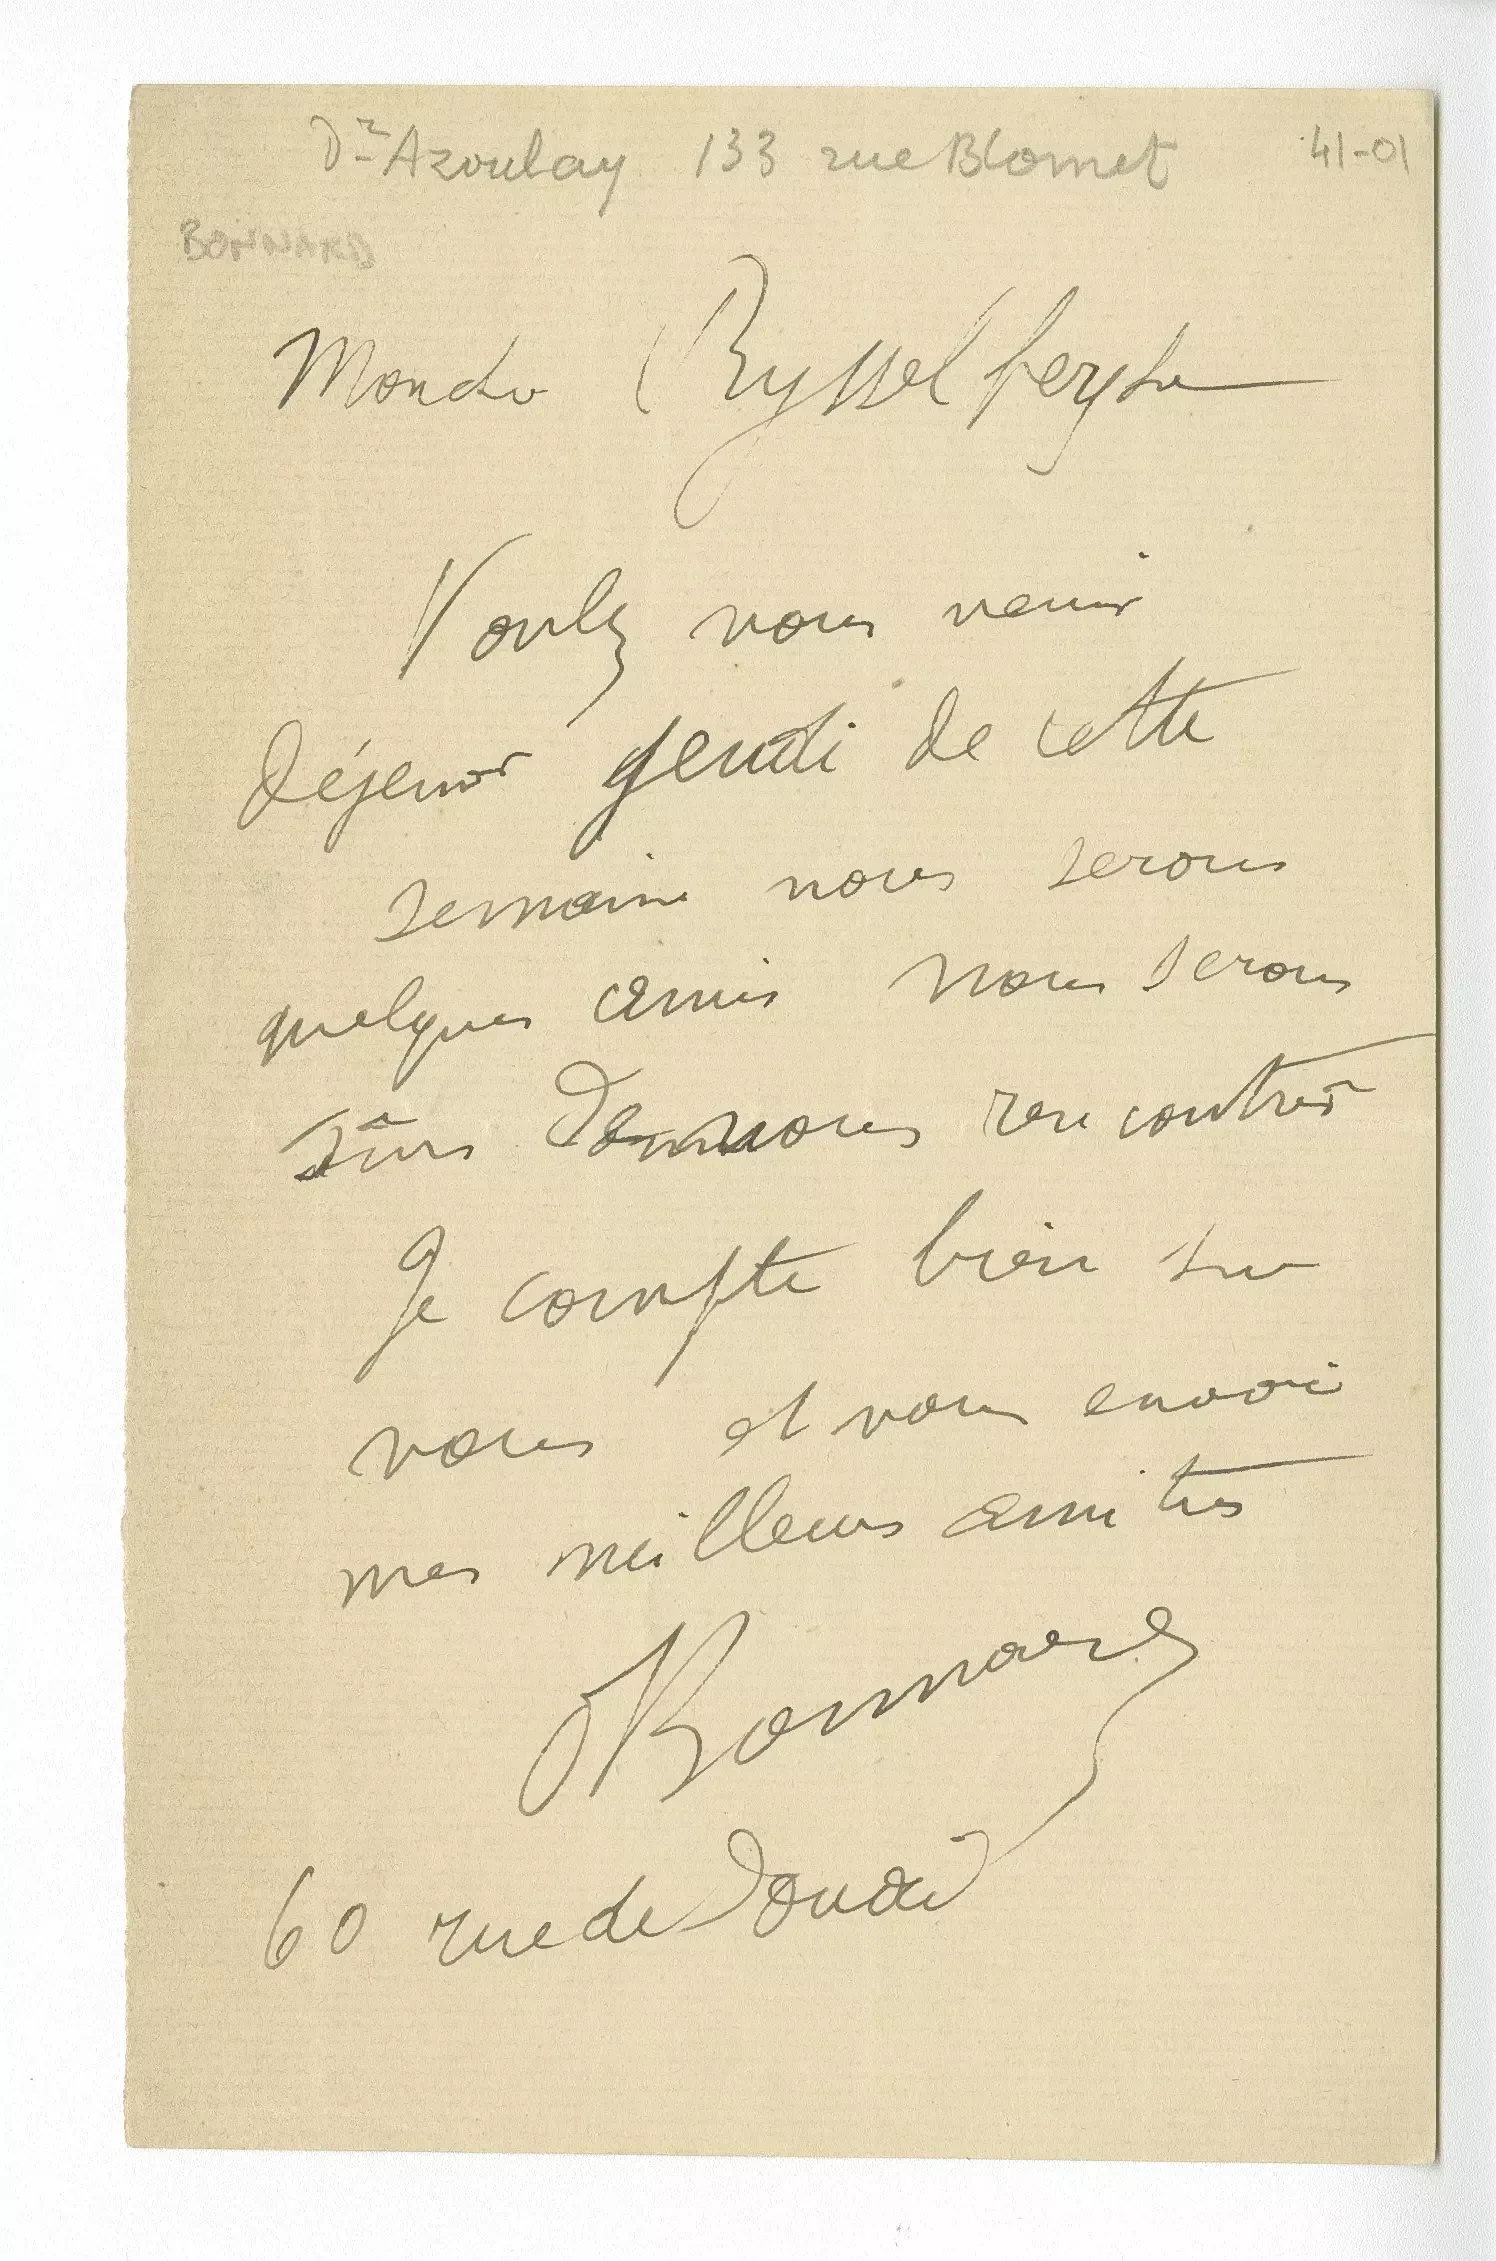 Dr Azoulay 133 rue Blomet 41-01
BONNARD
Mon cher Rysselberghe
Voulez vous venir
déjeuner jeudi de cette
semaine nous serons
quelques amis nous serons
sûrs de nous rencontrer
Je compte bien sur
vous et vous envoie
mes meilleures amitiés
Bonnard
60 rue de Douai